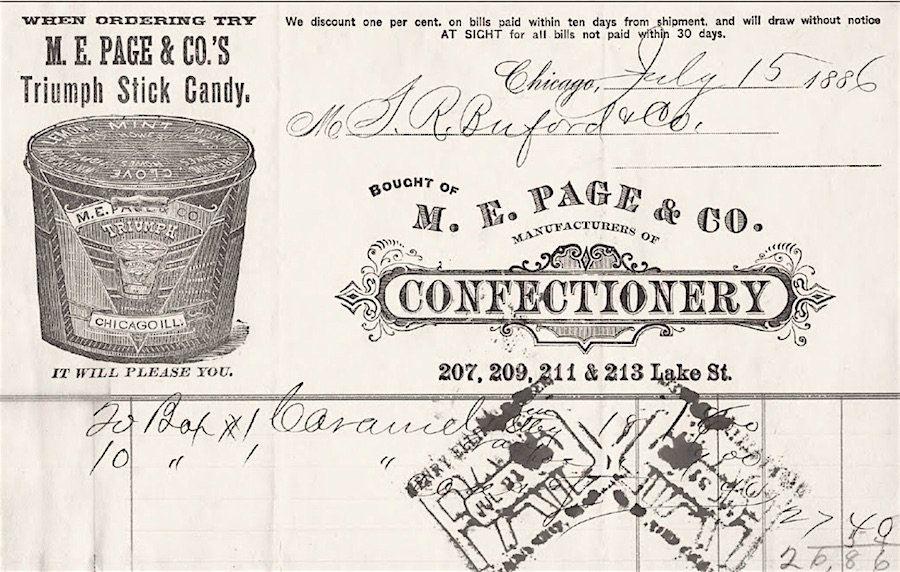 WHEN ORDERING TRY
M. E. PAGE & CO.'S
Triumph Stick Candy.
LEMON MINT
CLOVE
M. E. PAGE & CO.
TRIUMPH
CHICAGO ILL.
IT WILL PLEASE YOU.
We discount one per cent. on bills paid within ten days from shipment, and will draw without notice
AT SIGHT for all bills not paid within 30 days.
Chicago, July 15 1886
M T. R. Buford & Co.
BOUGHT OF
M. E. PAGE & CO.
MANUFACTURERS OF
CONFECTIONERY
207, 209, 211 & 213 Lake St.
20 Box 1 Caramel 18
10 " 1 "
JUL
27 40
26,86